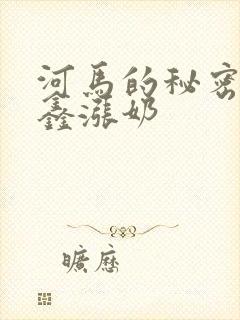 河马的秘密
鑫漲奶
曠歷